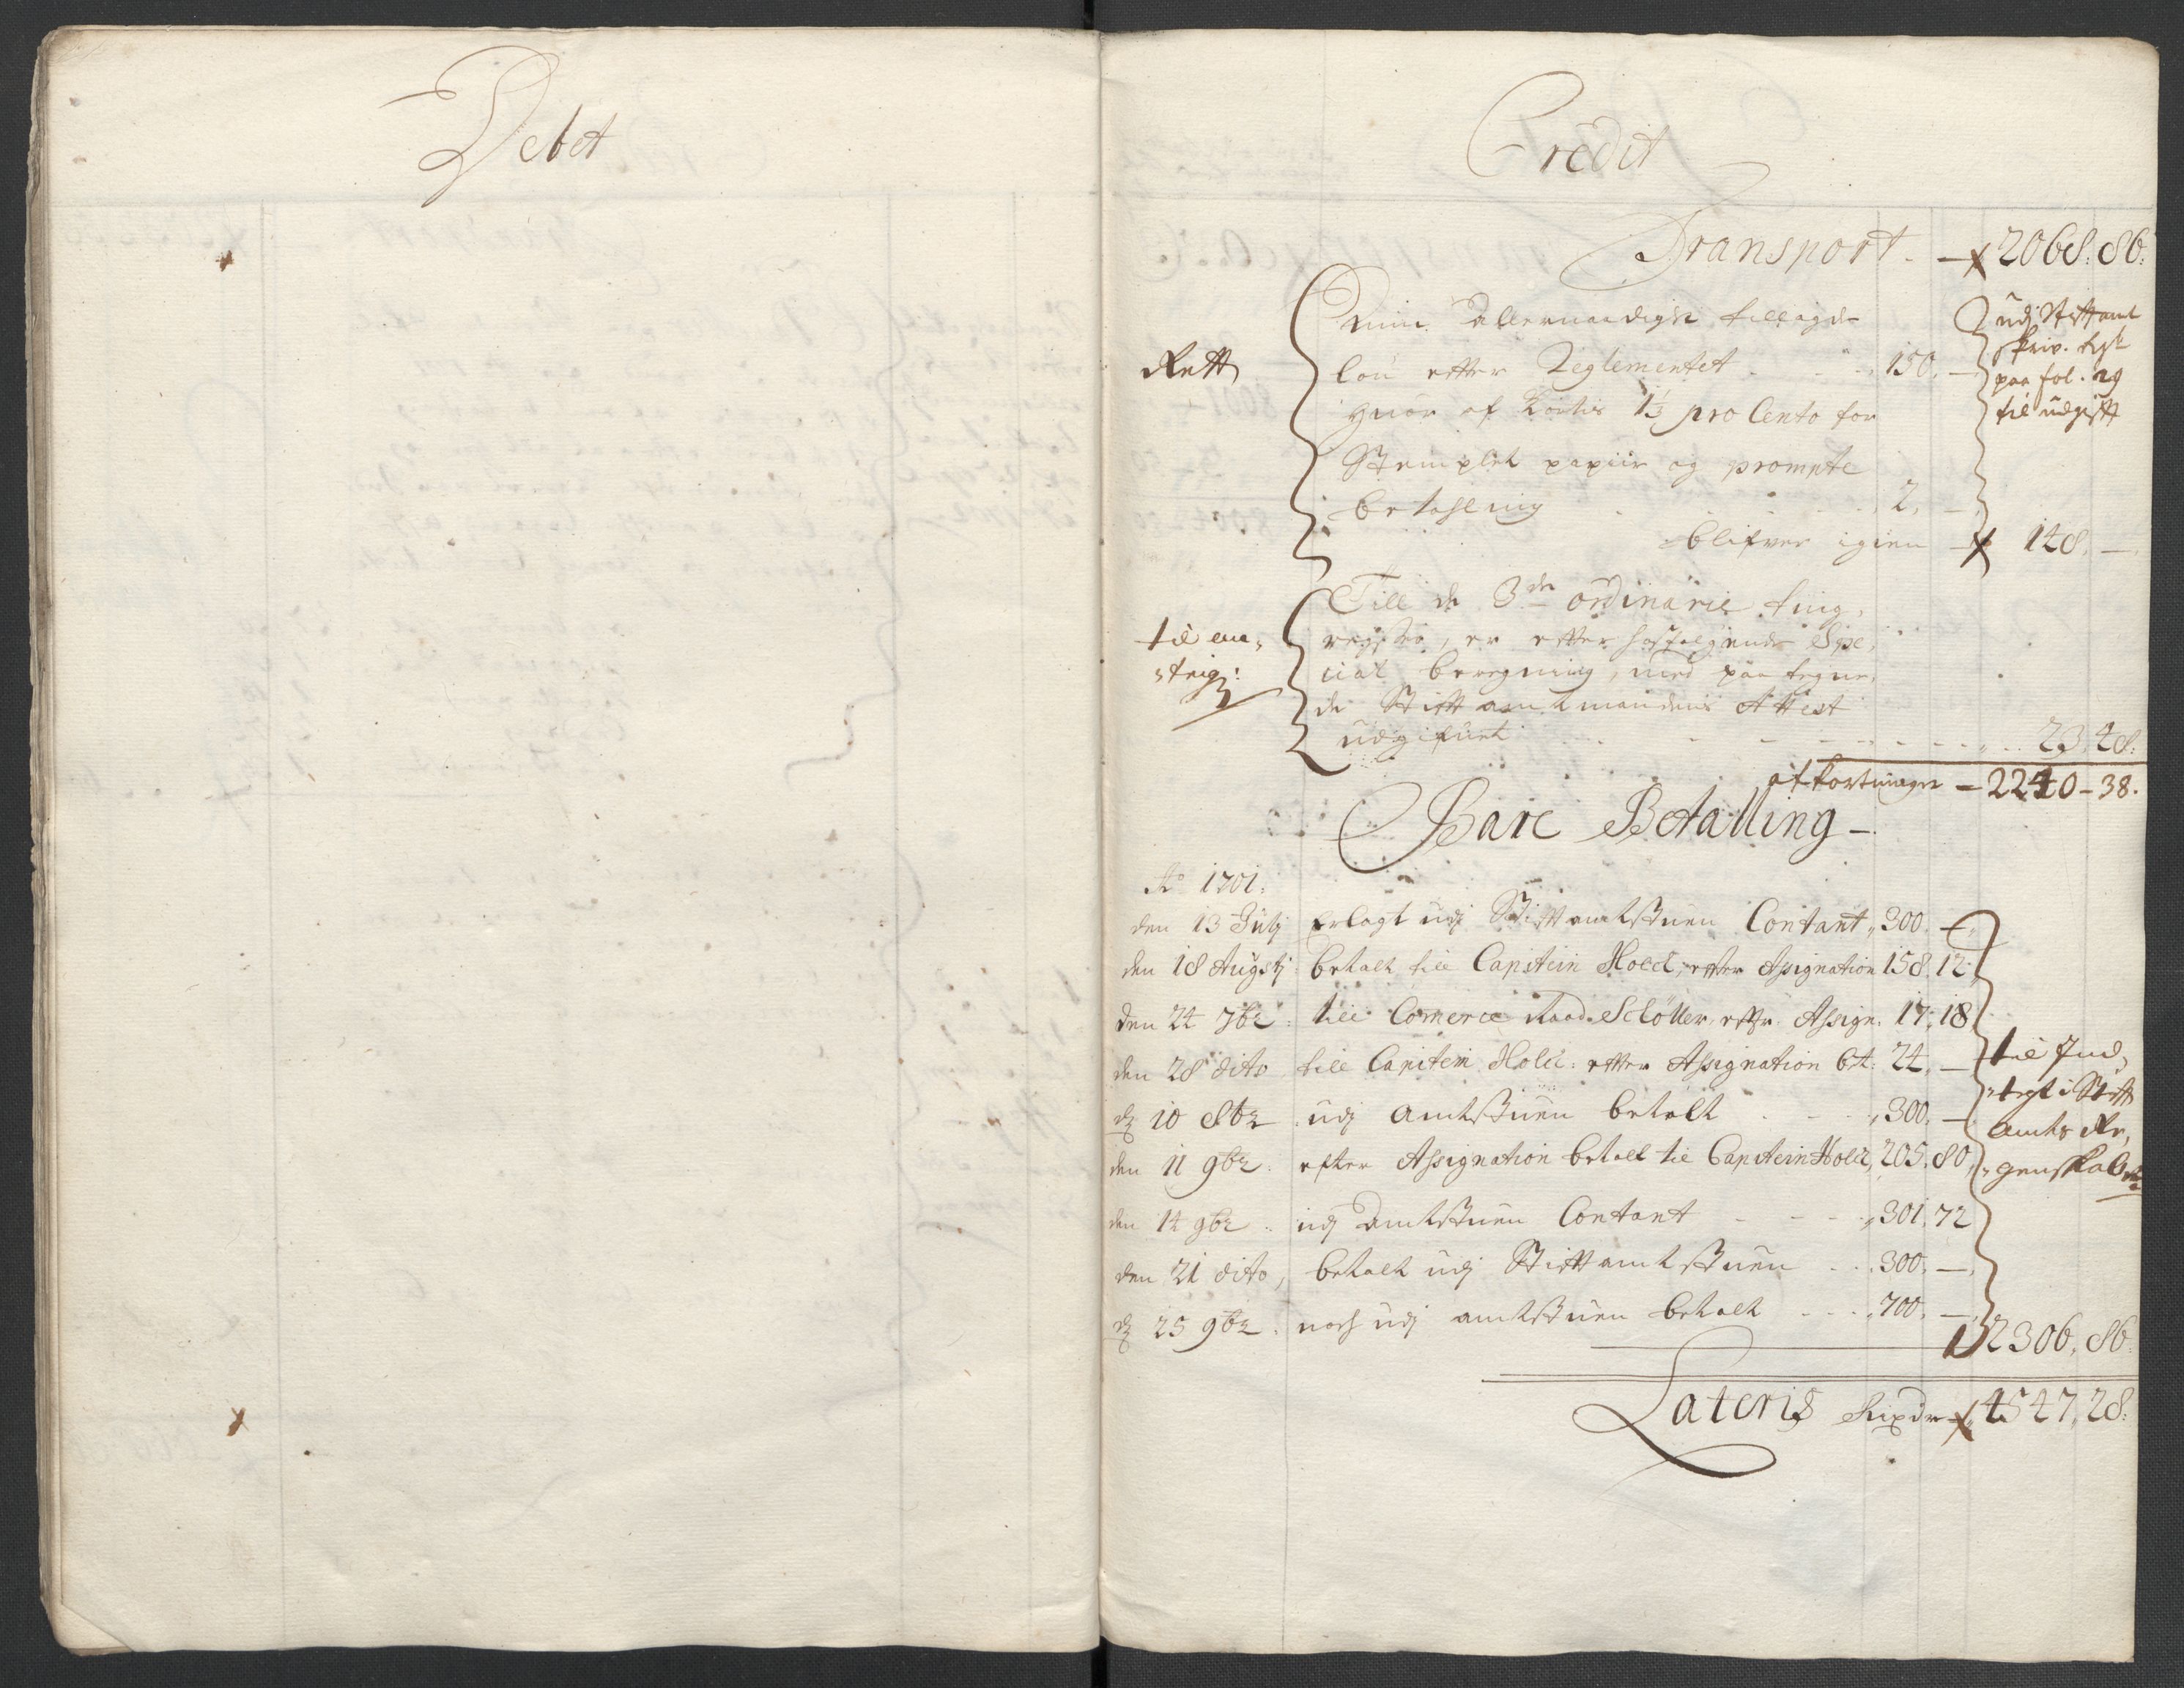 Debet
Credit
Transport. – 2068. 86.
Rett
Min allernaadigste tillagde
lön efter Reglementet . . . 150. –
huor af kortis 1⅓ pro Cento for
Stemplet papiir og prompte
betahling . . . 2. –
blifver igien – 148. –
udj Stiftamt
skriv. 
paa fol. 29
til udgift
Till de 3de ordinarie ting,
, er efter hosfølgende Spe,
cial beregning, med paa tegne,
de Stiftamtmandens Attest
udgifuet . . . 23. 48.
afkortninger – 2240 – 38.
Bare Betalling –
Ao 1701.
den 13 Julj Erlagt udj Stiftamtstuen Contant, 300. –
den 18 Augstj betalt till Capitein Hold, efter Assignation 158. 12
den 24 7br: till Comerce Raad Schöller, eftr. Assign. 17. 18
den 28 dito till Capitein Hold: efter Assignation bt: 24. –
d 10 8br udj amtstuen betalt . . . 300. –
den 11 9br: efter Assignation betalt til Capitein Hold, 205. 80
den 14 9br: udj Amtstuen Contant – – – 301. 72
den 21 dito, betalt udj Stiftamtstuen . . . 300. –
d 25 9br: noch udj amtstuen betalt . . . 700. –
til Ind,
tegt i Stift
amts Re,
genskabet
2306. 86.
Lateris Rixdr 4547. 28.